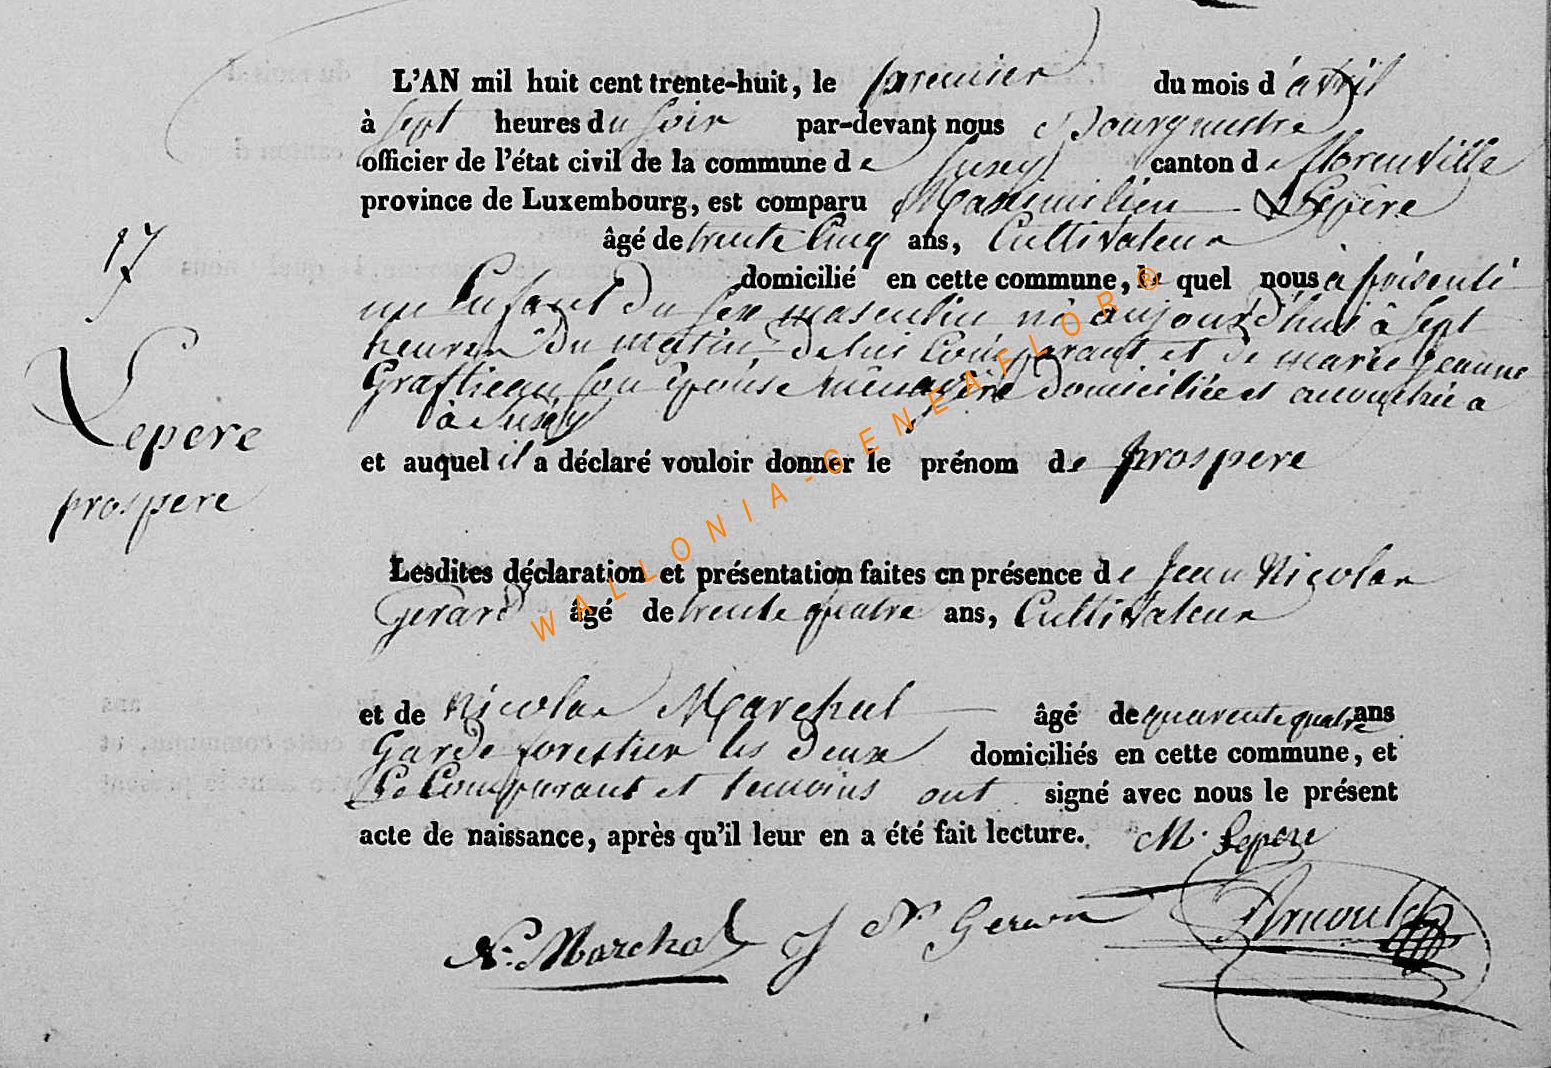 L'AN mil huit cent trente-huit, le premier du mois d'avril
à sept heures du soir par-devant nous Bourgmestre
officier de l'état civil de la commune de Suxy canton de florenville
province de Luxembourg, est comparu Maximilien Lepere
17
âgé de trente cinq ans, Cultivateur
domicilié en cette commune, le quel nous à présenté
un Enfant du sexe masculin né aujourd'hui à sept
heures du matin, de lui Comparant et de marie jeanne
son épouse ménagère domiciliée et accouchée a
à Suxy
Lepere
et auquel il a déclaré vouloir donner le prénom de prospere
prospere
Lesdites déclaration et présentation faites en présence de Jean Nicolas
Gerard âgé de trente quatre ans, Cultivateur
et de Nicolas Marchal âgé de quarente quatre ans
Garde forestier les deux domiciliés en cette commune, et
Le Comparant et temoins ont signé avec nous le présent
acte de naissance, après qu'il leur en a été fait lecture. M. Lepere
N. Marchal J N Gerard Arnould
WALLONIA-GENEAFLOR®